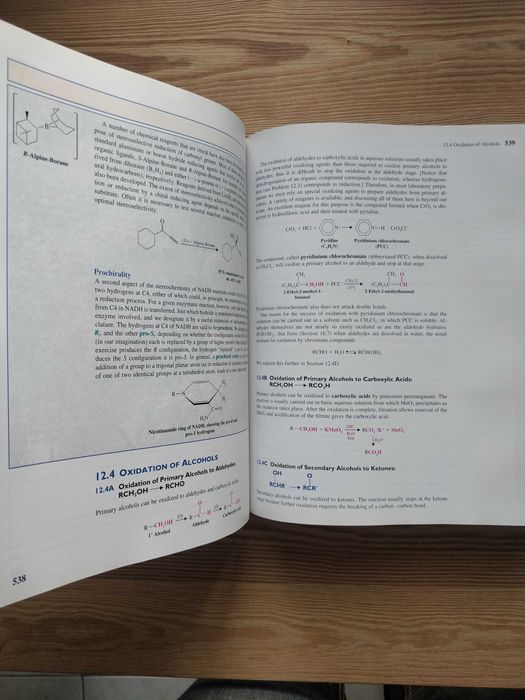 R-Alpine-Borane
A number of chemical reagents that are chiral have also been
pose of stereoselective reduction of carbonyl groups. Most
standard aluminum or boron hydride reducing agents
organic ligands. S-Alpine-Borane and R-Alpine-Borane, for example,
rived from diborane (B₂H₆) and either
ural hydrocarbons), respectively. Reagents derived from LiAlH₄
also been developed. The extent of stereoselectivity achieved
tion or reduction by a chiral reducing agent depends on the
substrate. Often it is necessary to test several reaction conditions
optimal stereoselectivity.
Prochirality
A second aspect of the stereochemistry of NADH reactions
two hydrogens at C4, either of which could, in principle, be
a reduction process. For a given enzymatic reaction, however, only
from C4 in NADH is transferred. Just which hydride is transferred
enzyme involved, and we designate it by a useful extension of
clature. The hydrogens at C4 of NADH are said to be prochiral.
R, and the other pro-S, depending on whether the configuration
(in our imagination) each is replaced by a group of higher priority than
exercise produces the R configuration, the hydrogen "replaced" is
duces the S configuration it is pro-S. In general, a prochiral center
addition of a group to a trigonal planar atom (as in reduction of a
of one of two identical groups at a tetrahedral atom, leads to a new
R—N
C=O
H₂N
Nicotinamide ring of NADH, showing the pro-R and
pro-S hydrogens
12.4 OXIDATION OF ALCOHOLS
12.4A Oxidation of Primary Alcohols to Aldehydes
RCH₂OH ⟶ RCHO
Primary alcohols can be oxidized to aldehydes and carboxylic acids
R—CH₂OH
1° Alcohol
Aldehyde
Carboxylic acid
538
12.4 Oxidation of Alcohols 539
The oxidation of aldehydes to carboxylic acids in aqueous solutions usually takes place
with less powerful oxidizing agents than those required to oxidize primary alcohols to
aldehydes; thus it is difficult to stop the oxidation at the aldehyde stage. [Notice that
dehydrogenation of an organic compound corresponds to oxidation, whereas hydrogena-
tion (see Problem 12.3) corresponds to reduction.] Therefore, in most laboratory prepa-
rations we must rely on special oxidizing agents to prepare aldehydes from primary al-
cohols. A variety of reagents is available, and discussing all of them here is beyond our
scope. An excellent reagent for this purpose is the compound formed when CrO₃ is dis-
solved in hydrochloric acid and then treated with pyridine.
CrO₃ + HCl + N: ⟶ N—H CrO₃Cl⁻
Pyridine
(C₅H₅N)
Pyridinium chlorochromate
(PCC)
This compound, called pyridinium chlorochromate (abbreviated PCC), when dissolved
in CH₂Cl₂, will oxidize a primary alcohol to an aldehyde and stop at that stage.
CH₃ CH₃ O
(C₂H₅)₂C—CH₂OH + PCC CH₂Cl₂ 25°C (C₂H₅)₂C—CH
2-Ethyl-2-methyl-1-
butanol
2-Ethyl-2-methylbutanal
Pyridinium chlorochromate also does not attack double bonds.
One reason for the success of oxidation with pyridinium chlorochromate is that the
oxidation can be carried out in a solvent such as CH₂Cl₂, in which PCC is soluble. Al-
dehydes themselves are not nearly so easily oxidized as are the aldehyde hydrates,
RCH(OH)₂, that form (Section 16.7) when aldehydes are dissolved in water, the usual
medium for oxidation by chromium compounds.
RCHO + H₂O ⇌ RCH(OH)₂
We explain this further in Section 12.4D.
12.4B Oxidation of Primary Alcohols to Carboxylic Acids:
RCH₂OH ⟶ RCO₂H
Primary alcohols can be oxidized to carboxylic acids by potassium permanganate. The
reaction is usually carried out in basic aqueous solution from which MnO₂ precipitates as
the oxidation takes place. After the oxidation is complete, filtration allows removal of the
MnO₂ and acidification of the filtrate gives the carboxylic acid.
R—CH₂OH + KMnO₄ OH⁻ H₂O heat RCO₂⁻K⁺ + MnO₂
H₃O⁺
RCO₂H
12.4C Oxidation of Secondary Alcohols to Ketones:
OH O
RCHR′ ⟶ RCR′
Secondary alcohols can be oxidized to ketones. The reaction usually stops at the ketone
stage because further oxidation requires the breaking of a carbon–carbon bond.